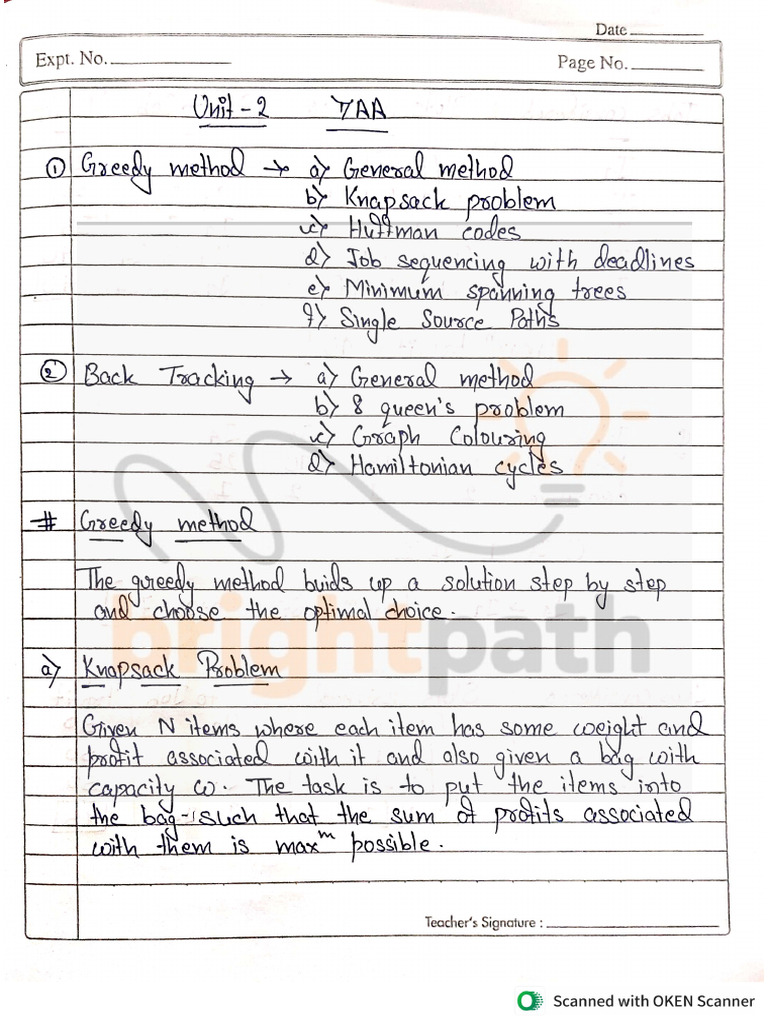 Date
Expt. No.
Page No.
Unit - 2 DAA
① Greedy method → a) General method
b) Knapsack problem
c) Huffman codes
d) Job sequencing with deadlines
e) Minimum spanning trees
f) Single Source Paths
② Back Tracking → a) General method
b) 8 queen's problem
c) Graph Colouring
d) Hamiltonian cycles
# Greedy method
The greedy method buids up a solution step by step
and choose the optimal choice.
brightpath
a) Knapsack Problem
Given N items where each item has some weight and
profit associated with it and also given a bag with
capacity w. The task is to put the items into
the bag such that the sum of profits associated
with them is maxᵐ possible.
Teacher's Signature :
Scanned with OKEN Scanner